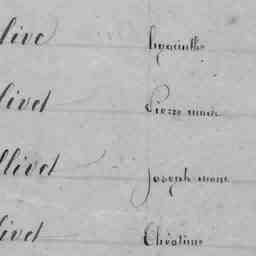 live hyacinthe
livet Pierre marie
llivet joseph marie
ivet Christine